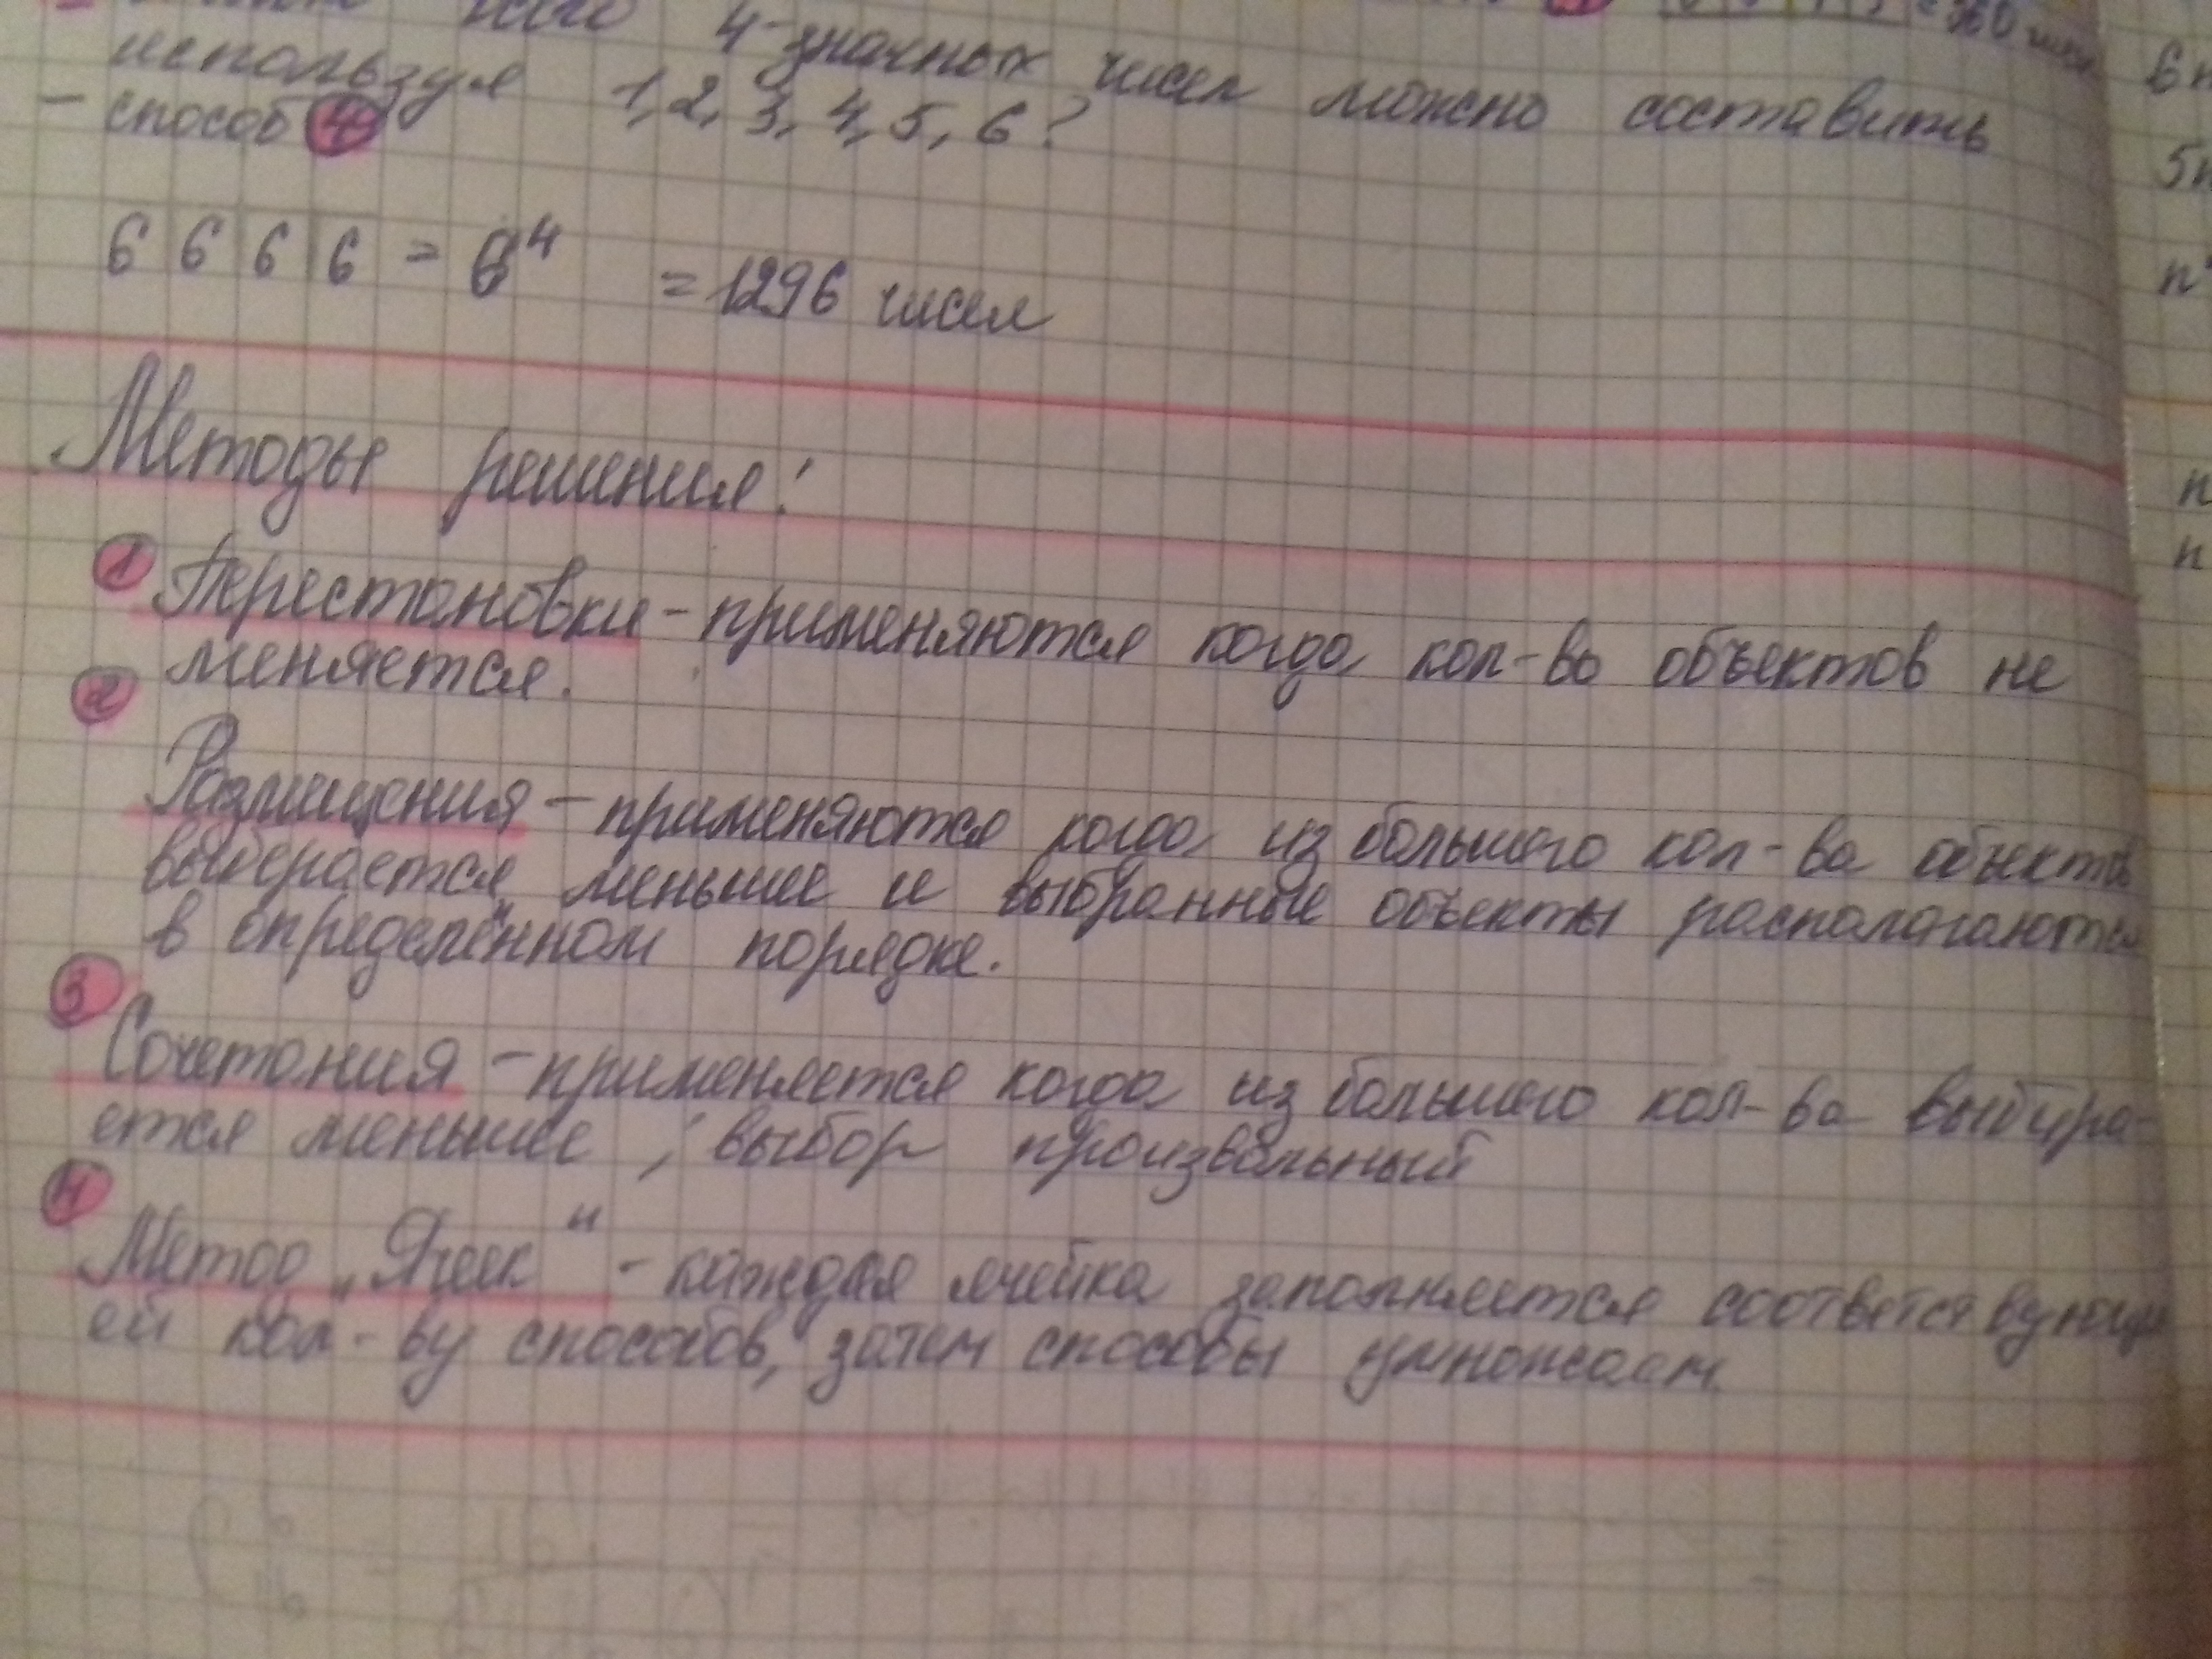 всего 4-значных чисел можно составить
используя 1, 2, 3, 4, 5, 6?
– способ 4
6 6 6 6 = 6⁴ = 1296 чисел
Методы решения:
1 Перестановки – применяются когда кол-во объектов не
меняется.
2
Размищения – применяются когда из большого кол-ва объектов
выберается меньшее и выбранные объекты располагаются
в определённом порядке.
3
Сочетания – применяется когда из большего кол-ва выбира-
ется меньшее, выбор произвольный
4
Метод „Ячеек" – каждая ячейка заполняется
ей кол-ву способов, затем способы умножаем.